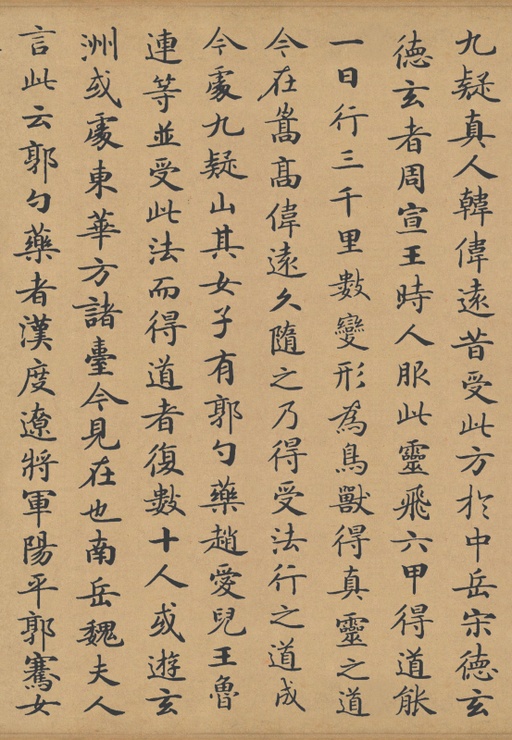 九疑真人韓偉遠昔受此方於中岳宋德玄
德玄者周宣王時人服此靈飛六甲得道能
一日行三千里數變形為鳥獸得真靈之道
今在嵩高偉遠久隨之乃得受法行之道成
今處九疑山其女子有郭勺藥趙愛兒王魯
連等並受此法而得道者復數十人或遊玄
洲或處東華方諸臺今見在也南岳魏夫人
言此云郭勺藥者漢度遼將軍陽平郭騫女